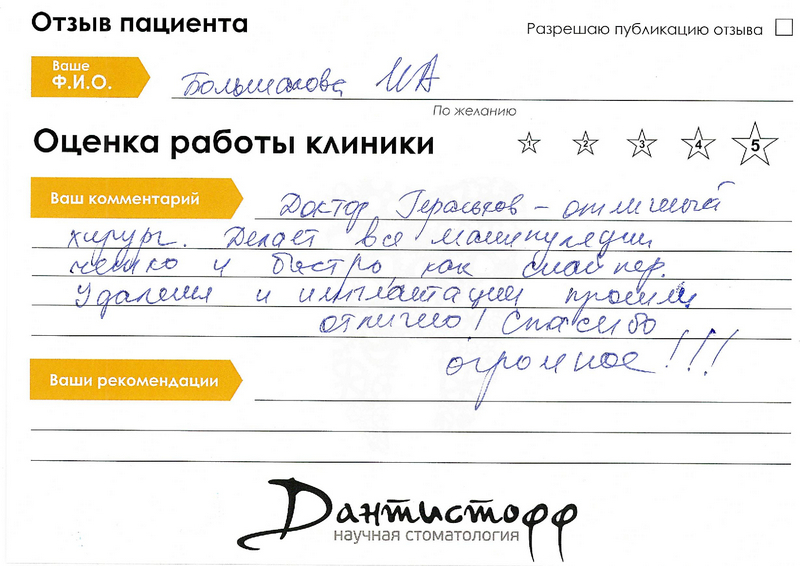 Отзыв пациента
Разрешаю публикацию отзыва
Ваше
Ф.И.О.
Большакова И А
По желанию
Оценка работы клиники
1 2 3 4 5
Ваш комментарий
Доктор Геральков – отличный
хирург. Делает все манипуляции
четко и быстро, как снайпер.
Удаления и имплантации прошли
отлично! Спасибо
огромное!!!
Ваши рекомендации
Дантистофф
научная стоматология